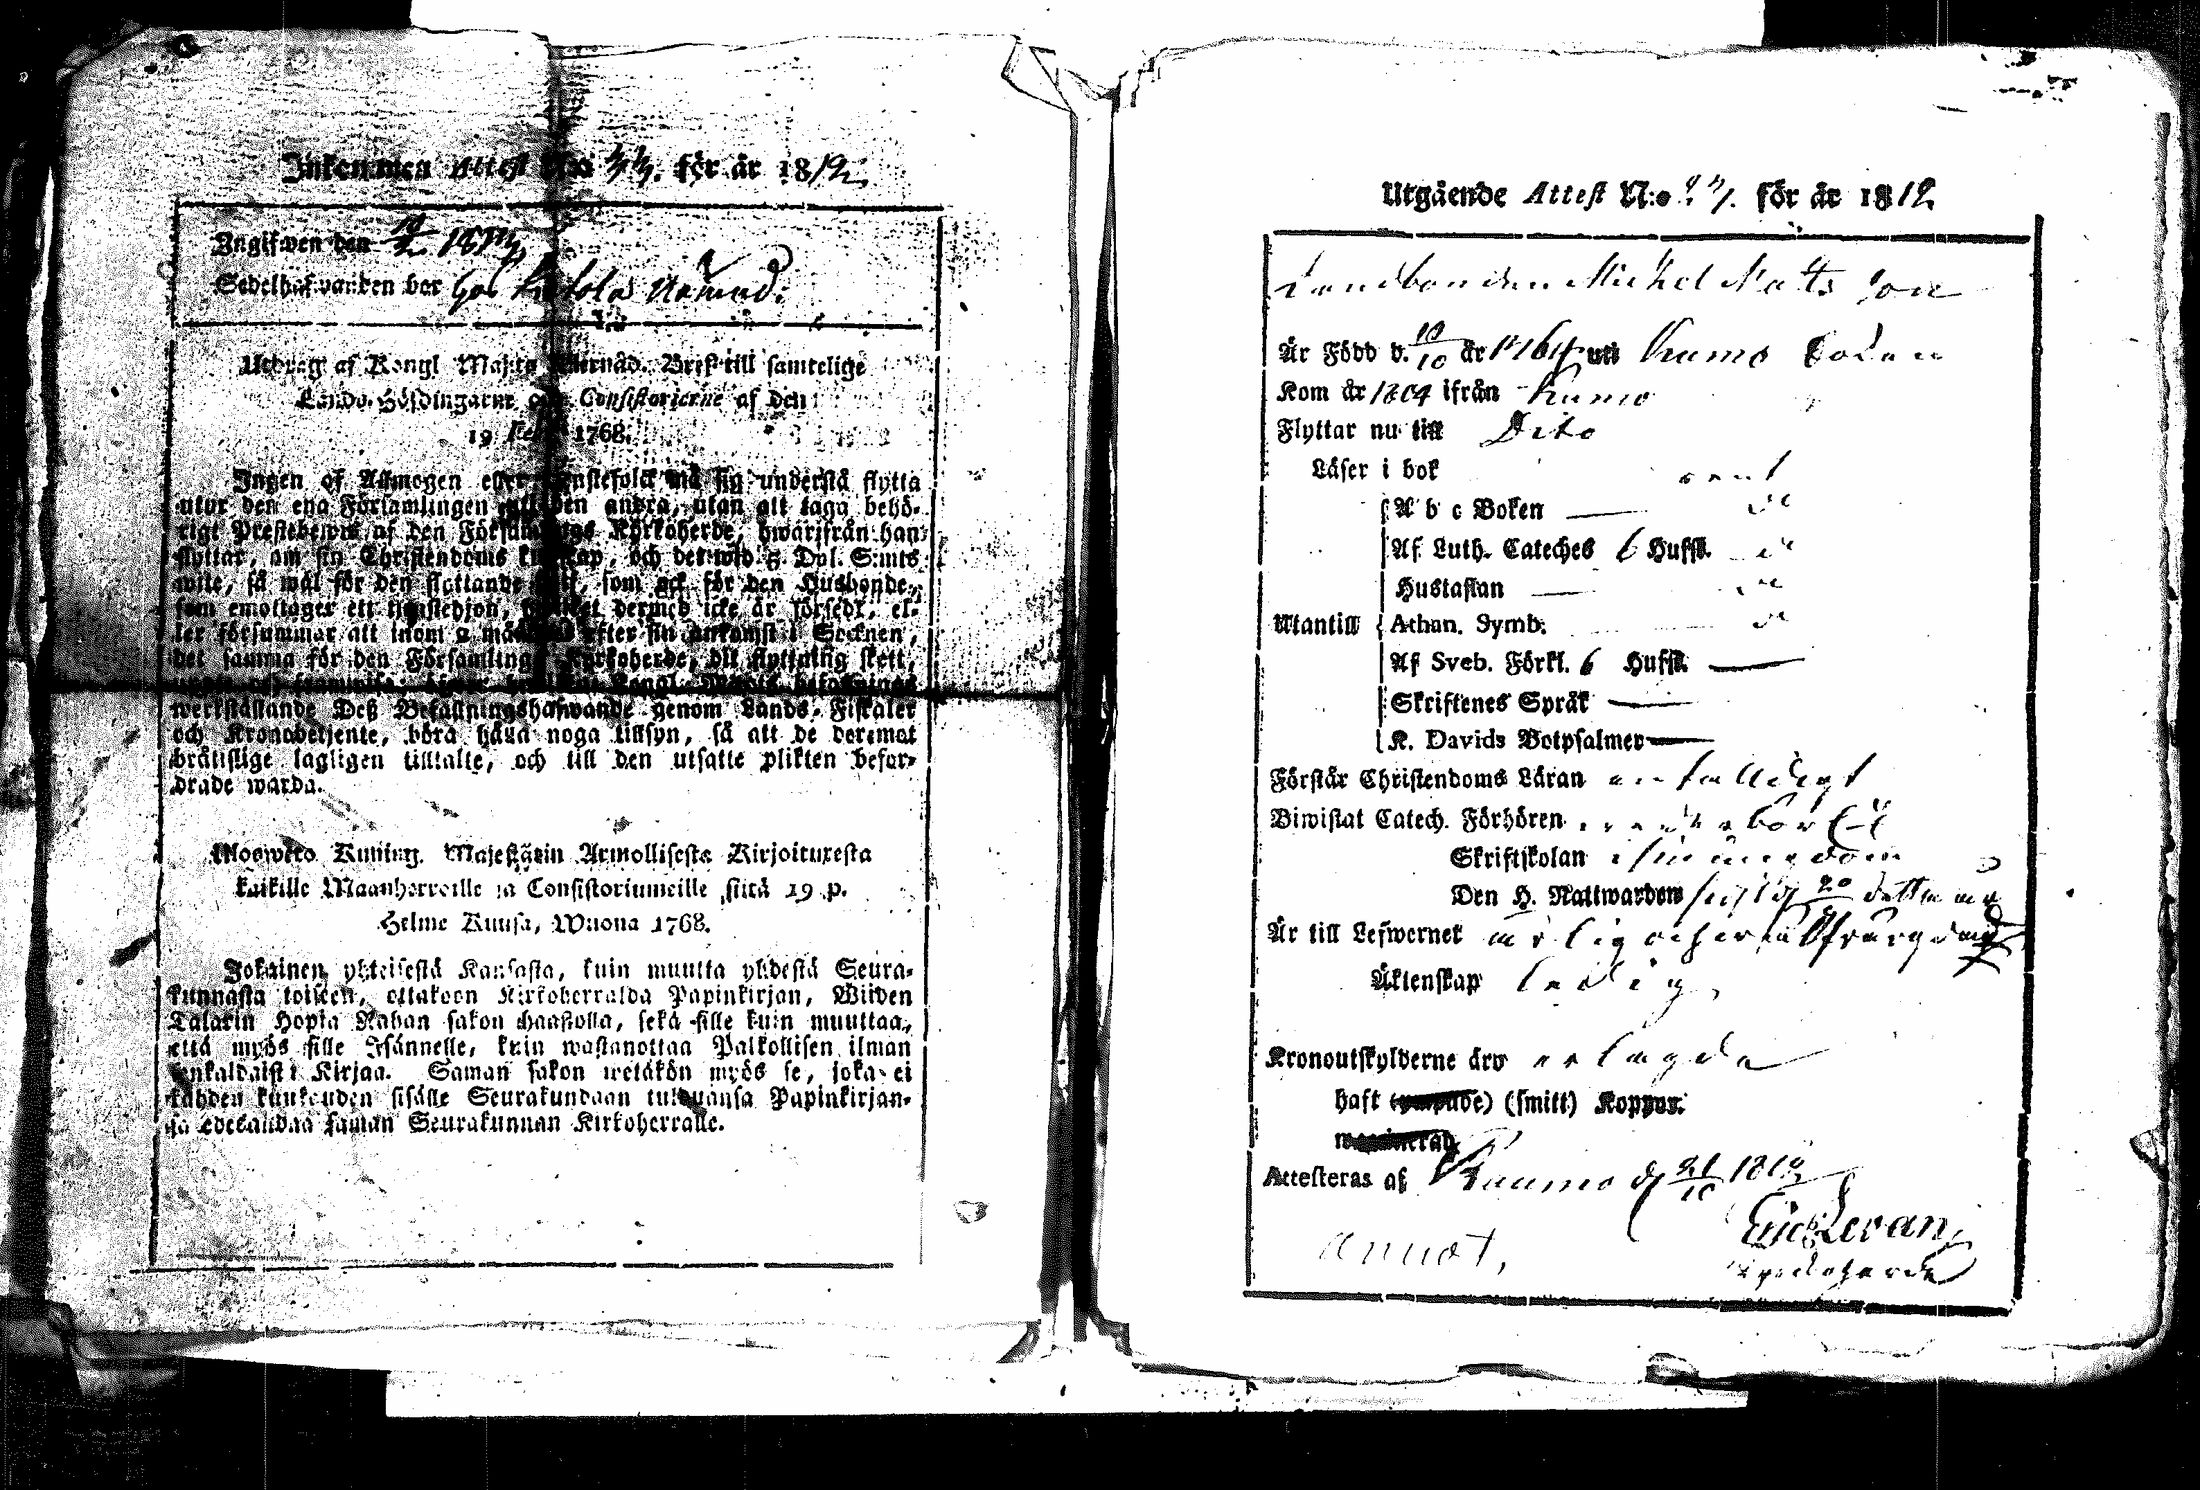 Inkommen Attest N:o för år 1812.
Ingifwen den
Sedelhafwanden bor hos
Utdrag af Kongl Maj:ts Allernåd. Bref till samtelige
Lands-Höfdingarne och Consistorierne af den
19 Febr. 1768.
Ingen af Allmogen eller Tjenstefolck må sig understå flytta
utur den ena Församlingen till den andra, utan att taga behö-
rigt Prestebewis af den Församlings Kyrkoherde, hwarifrån han
flyttar, om sin Christendoms kunskap, och det wid 3 Dal. S:mts
wite, så wäl för den flyttande sielf, som ock för den Husbonde,
som emottager ett tienstehjon, hwilket dermed icke är försedt, el-
ler försummar att inom 2 månader efter sin ankomst i Socknen,
det samma för den Församlings Kyrkoherde, dit flyttning skett,
werkställande Deß Befallningshafwande genom Lands-Fiskaler
och Kronobetjente, böra hafwa noga tillsyn, så att de deremot
bråtislige lagligen tilltalte, och till den utsatte plikten befor-
drade warda.
Muowito Kuning. Majestätin Armollisesta Kirjoituxesta
kaikille Maanherroille ja Consistoriumeille, siitä 19 p.
Helme Kuusa, Wuona 1768.
Jokainen yhteisestä Kansasta, kuin muutta yhdestä Seura-
kunnasta toiseen, ottakoon Kirkoherralda Papinkirjan, Wiiden
Talarin Hopia Rahan sakon haastolla, sekä sille kuin muuttaa,
että myös sille Isännelle, kuin wastanottaa Palkollisen ilman
senkaldaista Kirjaa. Saman sakon wetäkön myös se, joka ei
kahden kuukauden sisälle Seurakundaan tulduansa Papinkirjan-
sa edesandaa saman Seurakunnan Kirkoherralle.
Utgående Attest N:o för år 1812.
Landbonden Michel Mats son
Är Född d. 10/10 år 1764 uti Kumo Socken
Kom år 1804 ifrån Kumo
Flyttar nu till Dito
Läser i bok rent
A b c Boken
Af Luth. Cateches 6 Hufst.
Hustaflan
Utantill Athan. Symb.
Af Sveb. Förkl. 6 Hufst.
Skriftenes Språk
K. Davids Botpsalmer
Förstår Christendoms Läran enfalldigt
Biwistat Catech. Förhören
Skriftskolan i sin ungdom
Den H. Nattwarden sist d. 20 dennes
Är till Lefwernet ärlig och
Äktenskap ledig
Kronoutskylderne äro erlagde
haft (smitt) Koppor.
Attesteras af Raumo d 21/10 1812
Eric Levan,
Annot,
Kyrckoherde